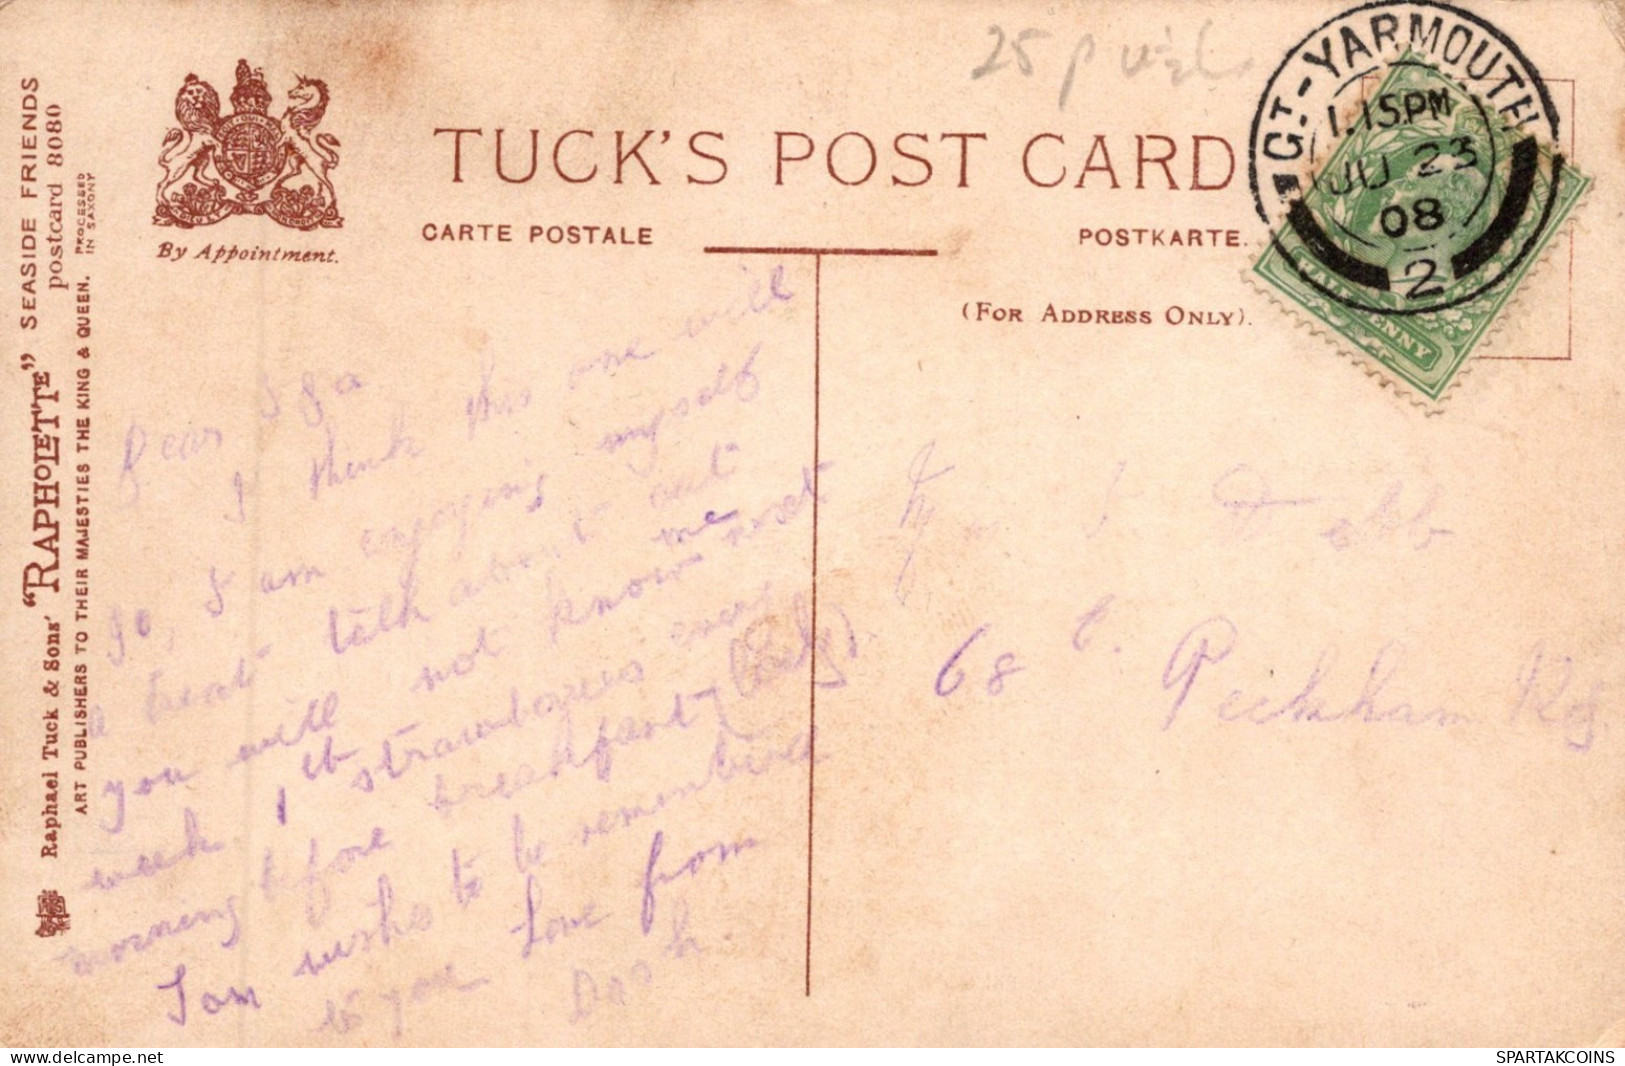 TUCK'S POST CARD
CARTE POSTALE
POSTKARTE.
(FOR ADDRESS ONLY).
By Appointment.
Raphael Tuck & Sons' "RAPHOLETTE" SEASIDE FRIENDS
postcard 8080
ART PUBLISHERS TO THEIR MAJESTIES THE KING & QUEEN.
PROCESSED
IN SAXONY
GT.-YARMOUTH
1.15PM
JU 23
08
2
HALFPENNY
25
Dear
I think this one will
go, I am enjoying myself
a treat talk about out
you will not know me
week, strawberries every
morning before breakfast
Tom wishes to be remembered
to you Love from
68
Peckham Rd
www.delcampe.net
SPARTAKCOINS